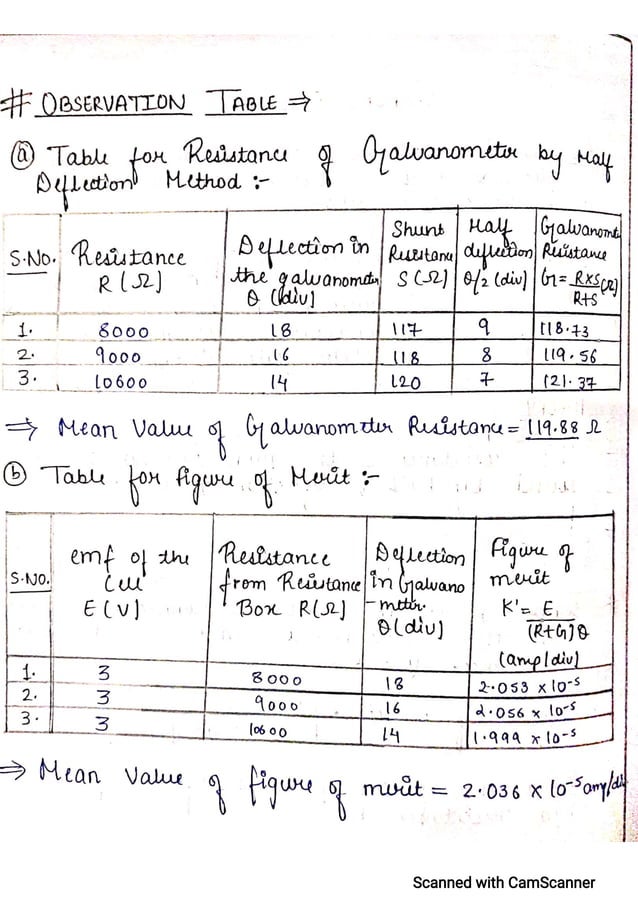 # OBSERVATION TABLE ⇒
ⓐ Table for Resistance of Galvanometer by Half
Deflection Method :-
S.No. | Resistance R (Ω) | Deflection in the galvanometer θ (div) | Shunt Resistance S (Ω) | Half deflection θ/2 (div) | Galvanomet Resistance G = R×S/R+S (Ω)
1. | 8000 | 18 | 117 | 9 | 118.73
2. | 9000 | 16 | 118 | 8 | 119.56
3. | 10600 | 14 | 120 | 7 | 121.37
⇒ Mean Value of Galvanometer Resistance = 119.88 Ω
ⓑ Table for figure of Merit :-
S.NO. | emf of the cell E (V) | Resistance from Resistance Box R(Ω) | Deflection in Galvano-meter. θ(div) | Figure of merit K' = E/(R+G)θ (amp/div)
1. | 3 | 8000 | 18 | 2.053 × 10⁻⁵
2. | 3 | 9000 | 16 | 2.056 × 10⁻⁵
3. | 3 | 10600 | 14 | 1.999 × 10⁻⁵
⇒ Mean Value of figure of merit = 2.036 × 10⁻⁵ amp/div
Scanned with CamScanner